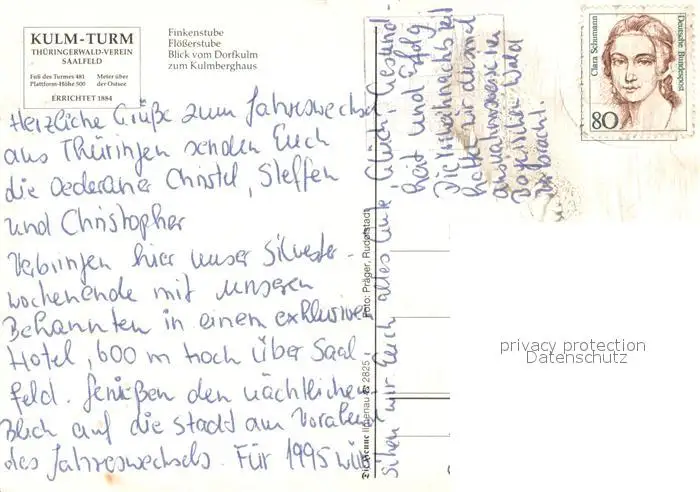 KULM-TURM
THÜRINGERWALD-VEREIN
SAALFELD
Fuß des Turmes 481 Meter über
Plattform-Höhe 500 der Ostsee
ERRICHTET 1884
Finkenstube
Flößerstube
Blick vom Dorfkulm
zum Kulmberghaus
Herzliche Grüße zum Jahreswechsel
aus Thüringen senden Euch
die Oederaner Christel, Steffen
und Christopher
Verbringen hier unser Silvester-
wochenende mit unseren
Bekannten in einem exklusiven
Hotel, 600 m hoch über Saal-
feld. Genießen den nächtlichen
Blick auf die Stadt am Vorabend
des Jahreswechsels. Für 1995 wün
schen wir Euch alles Gute, Glück, Gesund-
heit und Erfolg
Die Vorweihnachtszeit
hatten wir diesmal
ausnahmsweise im
Bayrischen Wald
verbracht.
Foto: Präger, Rudolstadt
Ilmenau
2825
Clara Schumann
Deutsche Bundespost
80
privacy protection
Datenschutz